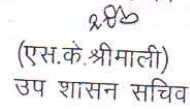 (एस.के.श्रीमाली)
उप शासन सचिव